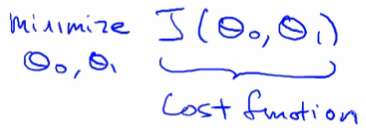 minimize J(θ₀, θ₁)
θ₀, θ₁
Cost function